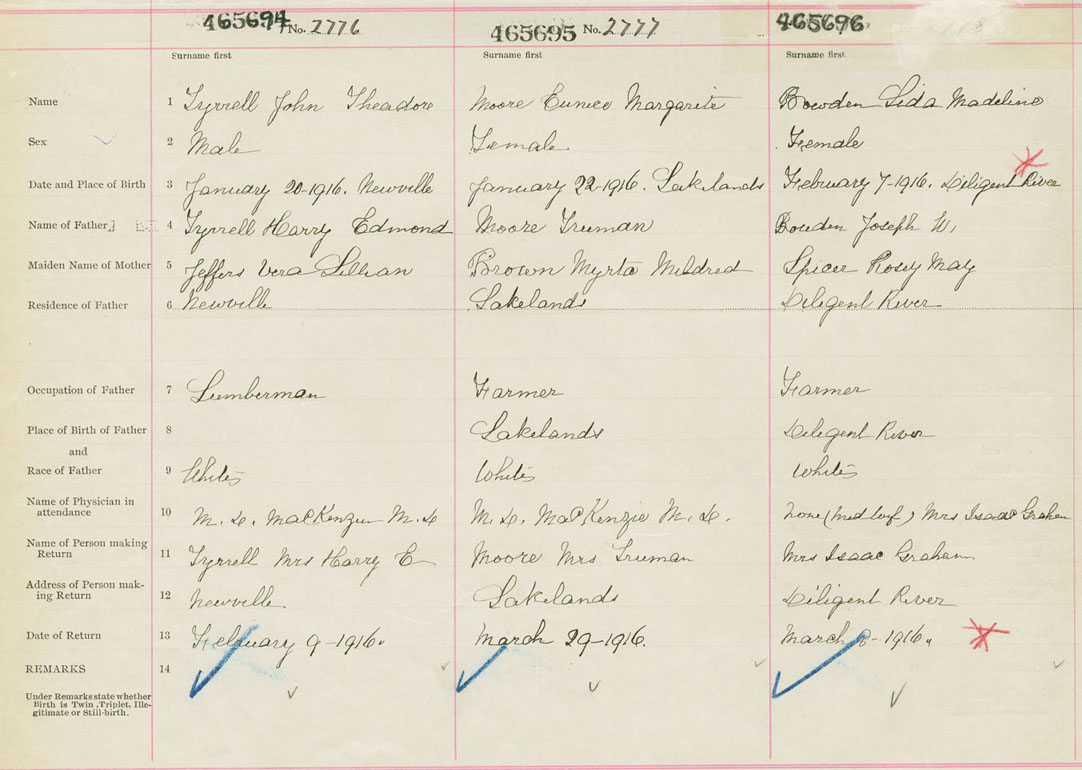 465694 No. 2776 465695 No. 2777 465696
Surname first Surname first Surname first
Name 1 Tyrrell John Theadore Moore Eunice Margarite Bowden Lida Madeline
Sex 2 Male Female Female
Date and Place of Birth 3 January 20-1916. Newville January 22-1916. Lakelands February 7-1916. Diligent River
Name of Father 4 Tyrrell Harry Edmond Moore Truman Bowden Joseph W.
Maiden Name of Mother 5 Jeffers Vera Lillian Brown Myrta Mildred Spicer Rosey May
Residence of Father 6 Newville Lakelands Diligent River
Occupation of Father 7 Lumberman Farmer Farmer
Place of Birth of Father 8 Lakelands Diligent River
and
Race of Father 9 White White White
Name of Physician in
attendance 10 M. D. MacKenzie M.D M. D. MacKenzie M. D. none (mid wif) Mrs Isaac Graham
Name of Person making
Return 11 Tyrrell Mrs Harry E Moore Mrs Truman Mrs Isaac Graham
Address of Person mak-
ing Return 12 Newville Lakelands Diligent River
Date of Return 13 February 9-1916. March 29-1916. March -1916.
REMARKS 14
Under Remarks state whether
Birth is Twin, Triplet, Ille-
gitimate or Still-birth.